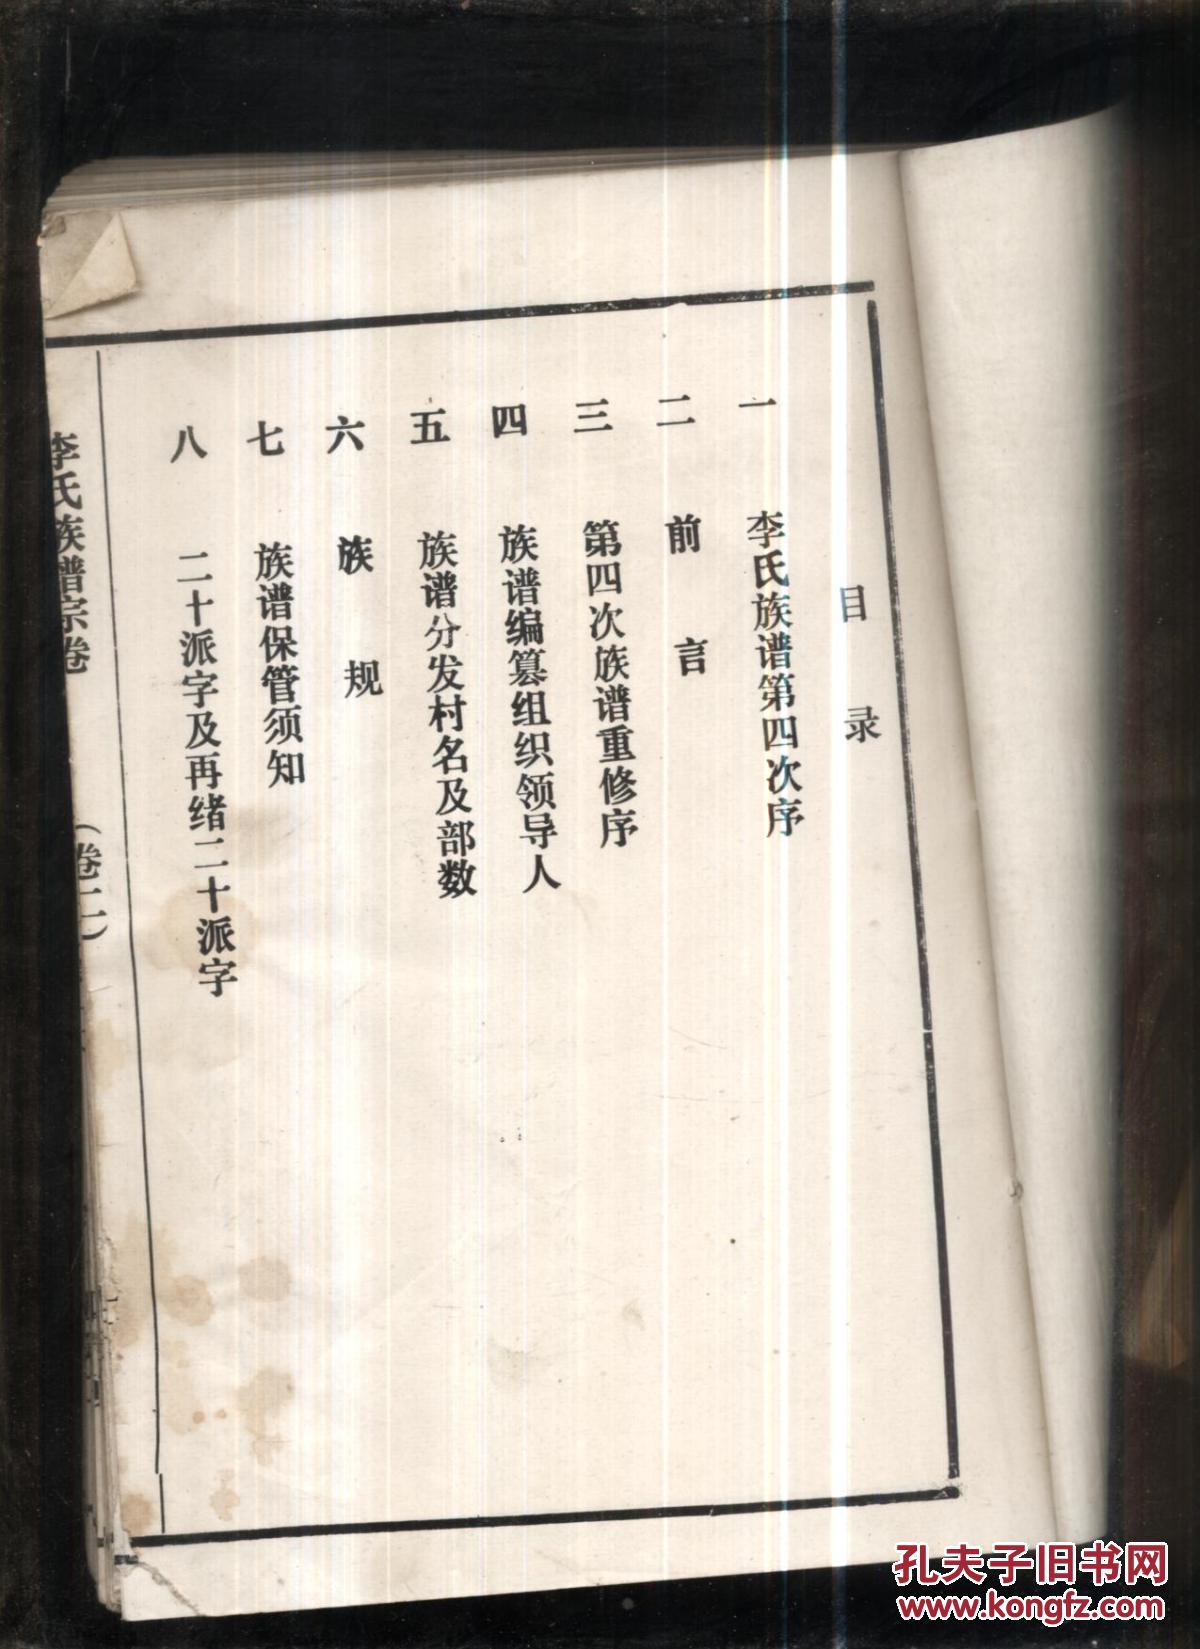 目录
一 李氏族谱第四次序
二 前言
三 第四次族谱重修序
四 族谱编篡组织领导人
五 族谱分发村名及部数
六 族规
七 族谱保管须知
八 二十派字及再绪二十派字
李氏族谱宗卷 (卷二)
孔夫子旧书网
www.kongfz.com